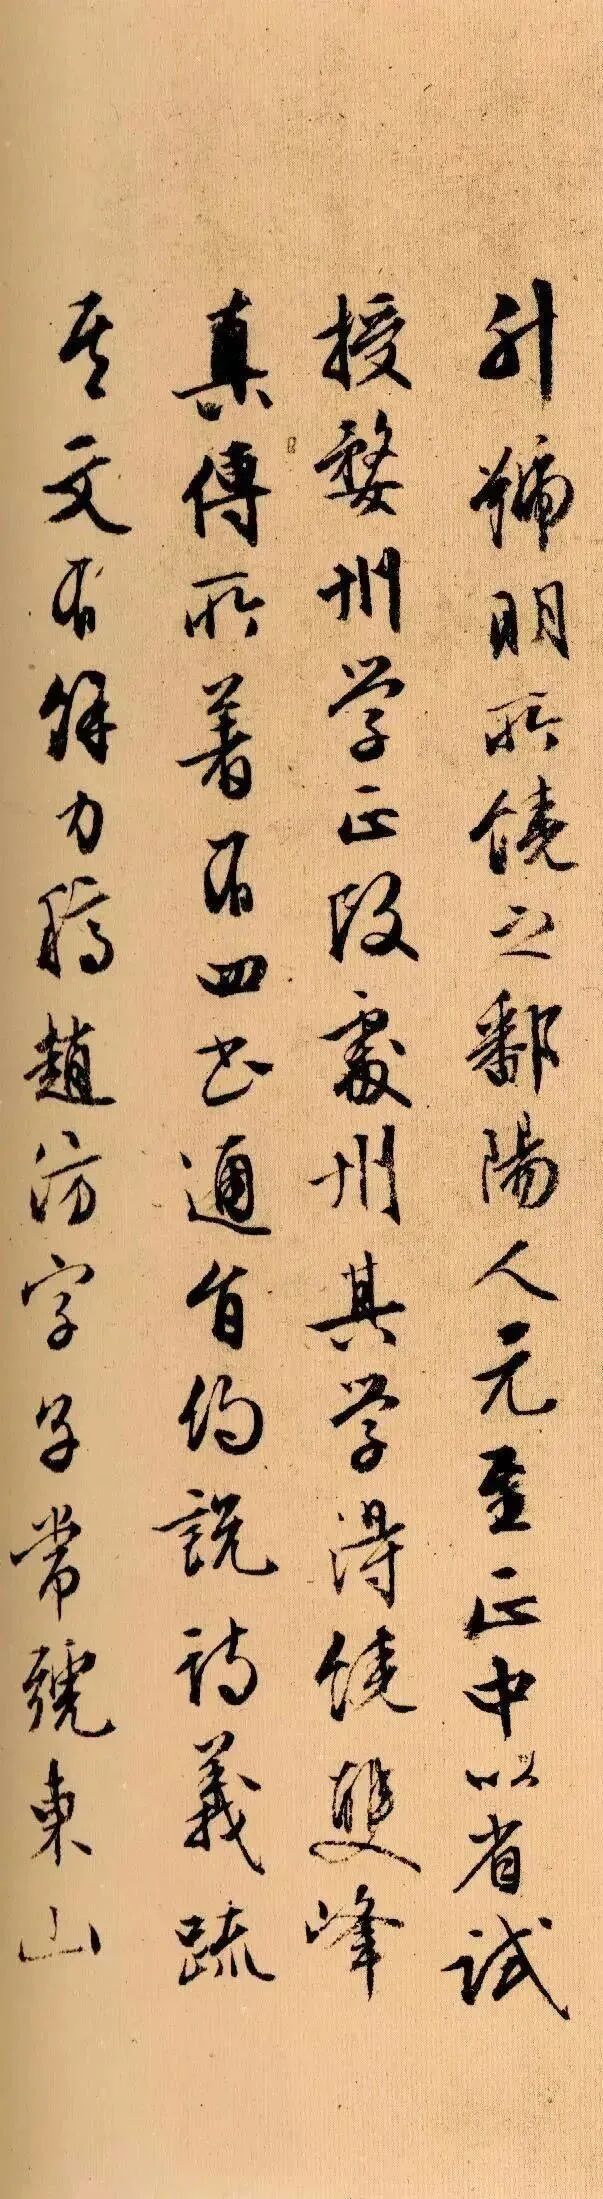 升號明所饒之鄱陽人元至正中以省試
授婺州学正改處州其学得饒雙峰
真傳所著有四书通旨約説詩義疏
其文有餘力稿趙汸字子常號東山